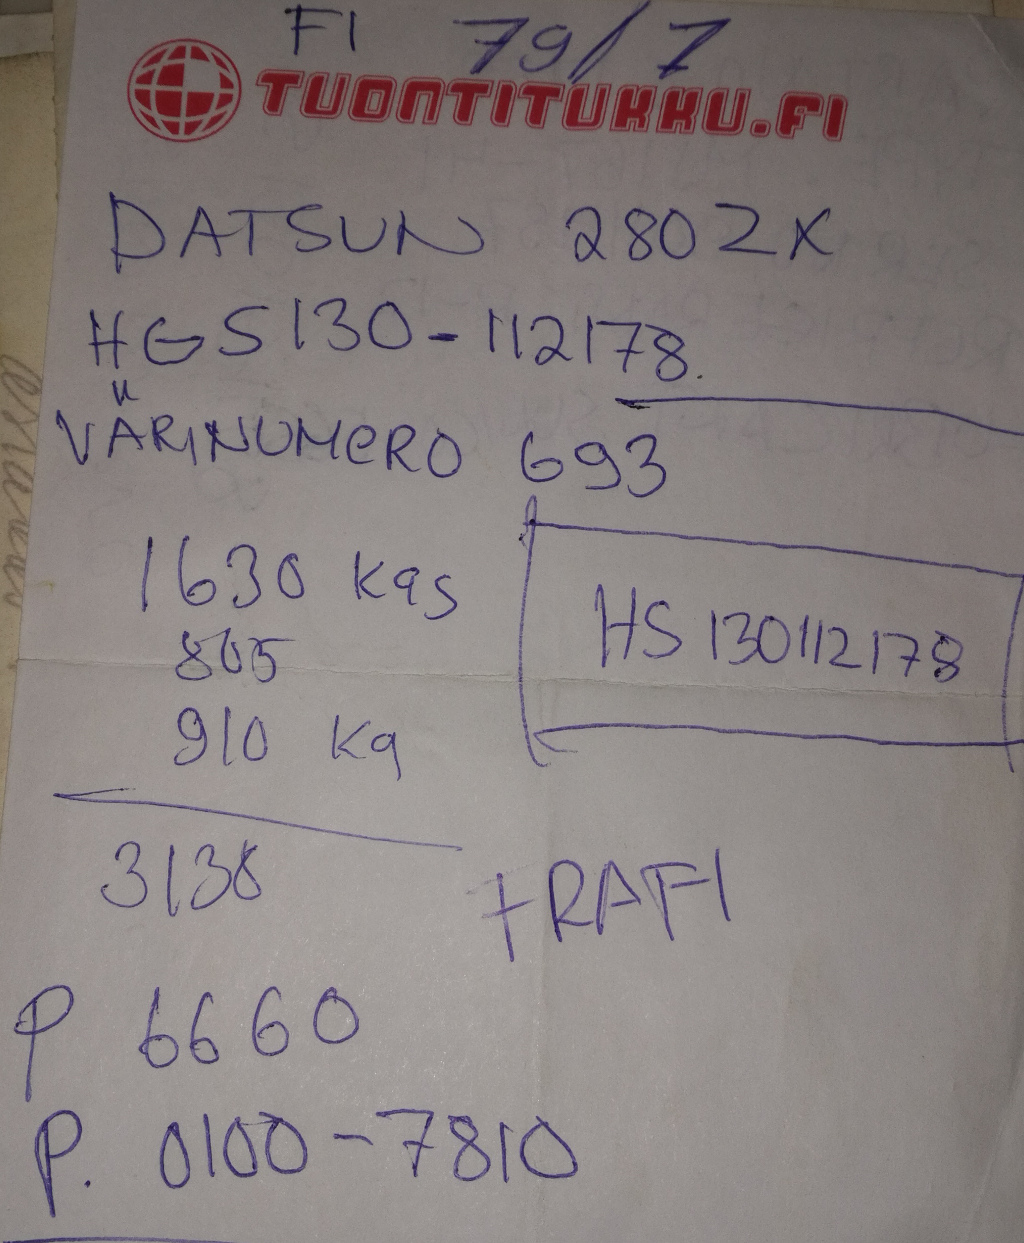 FI 79/7
TUONTITUKKU.FI
DATSUN 280ZX
HGS130-112178.
VÄRINUMERO 693
1630 kgs
805
910 kg
HS 130112178
3138
TRAFI
P 6660
P. 0100-7810